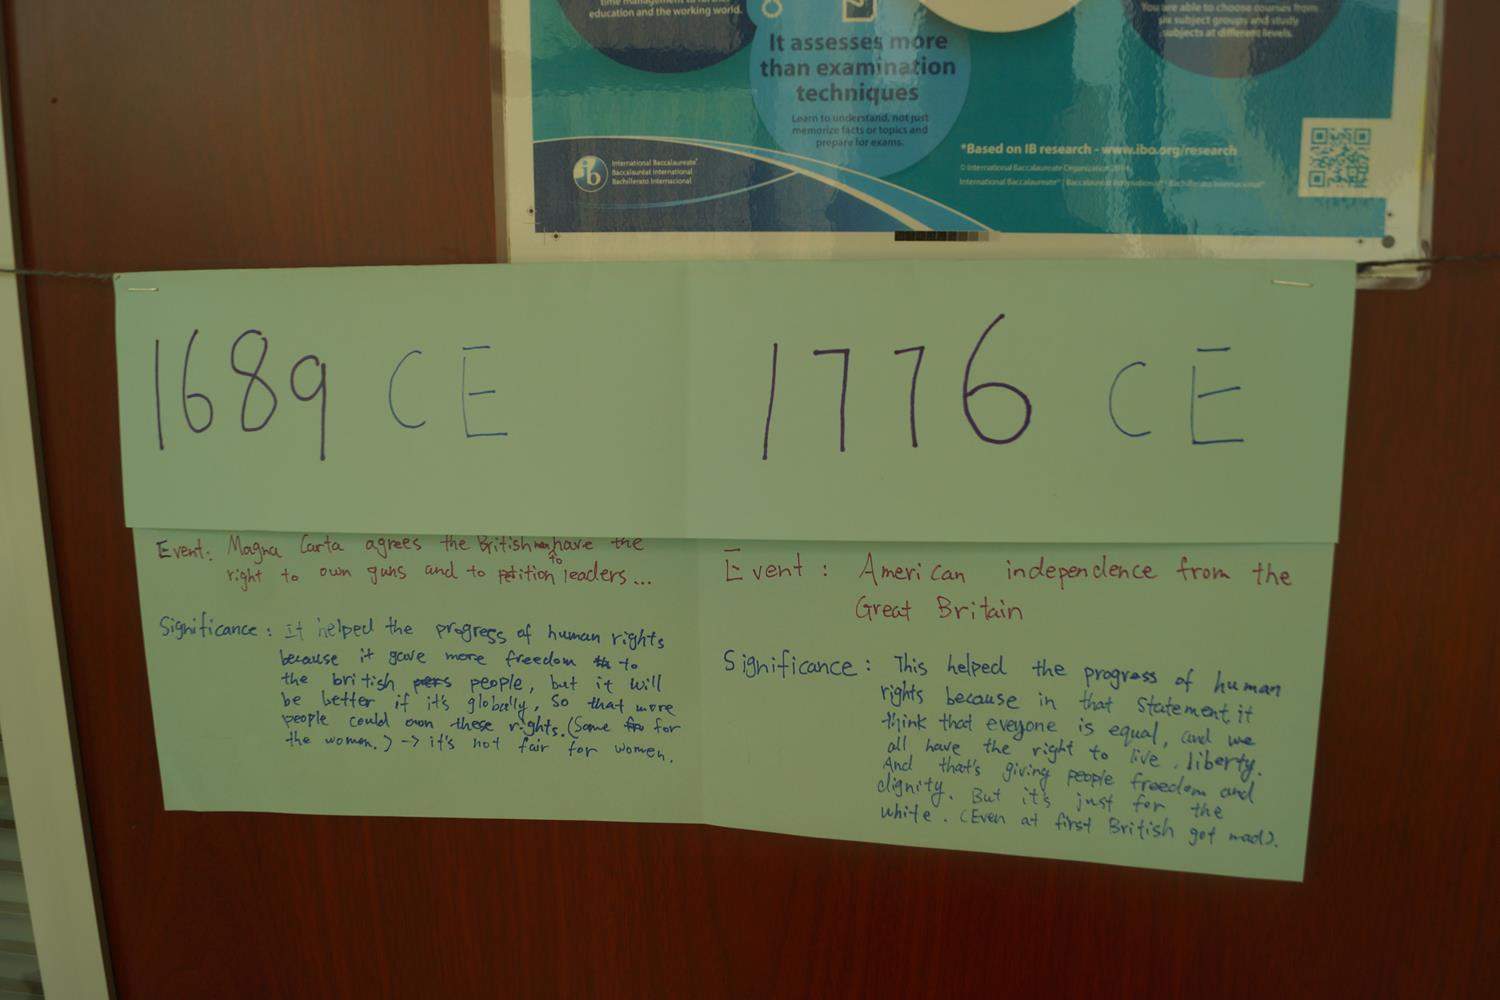 education and the working world.
It assesses more
than examination
techniques
Learn to understand, not just
memorize facts or topics and
prepare for exams.
You are able to choose courses from
six subject groups and study
subjects at different levels.
*Based on IB research - www.ibo.org/research
© International Baccalaureate Organization
International Baccalaureate® | Baccalauréat International® | Bachillerato Internacional®
ib
International Baccalaureate®
Baccalauréat International
Bachillerato Internacional
1689 CE
Event: Magna Carta agrees the British have the
right to own guns and to petition to leaders...
Significance: It helped the progress of human rights
because it gave more freedom to
the british people, but it will
be better if it's globally, so that more
people could own these rights. (Same for
the women.) -> it's not fair for women.
1776 CE
Event: American independence from the
Great Britain
Significance: This helped the progress of human
rights because in that statement, it
think that eveyone is equal, and we
all have the right to live, liberty.
And that's giving people freedom and
dignity. But it's just for the
white. (Even at first British got mad).